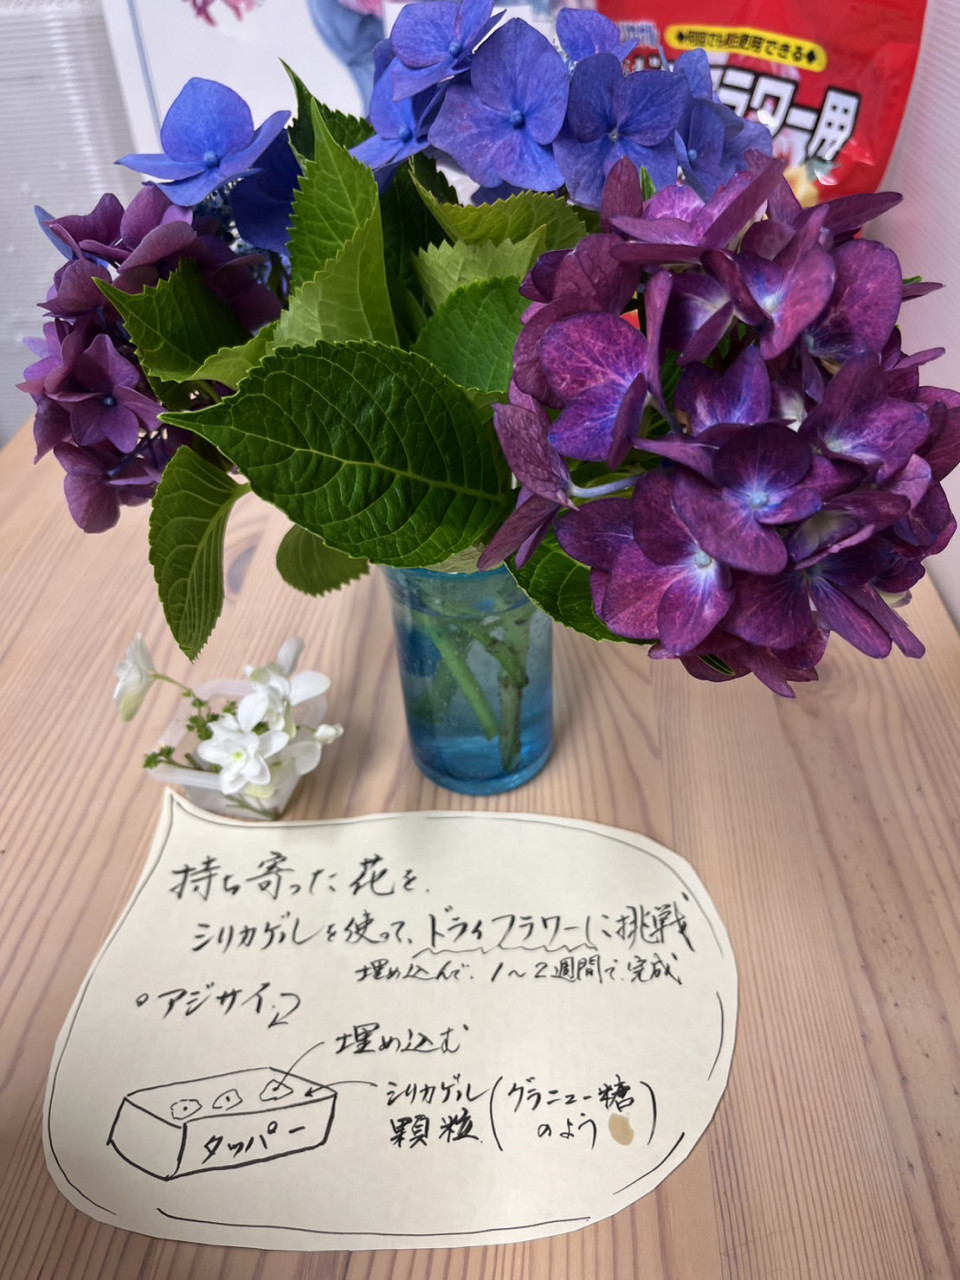 何回でも使用できる
ラワー用
持ち寄った花を、
シリカゲルを使って、ドライフラワーに挑戦
埋め込んで、1〜2週間で完成
アジサイ
埋め込む
シリカゲル
顆粒
(グラニュー糖
のよう)
タッパー